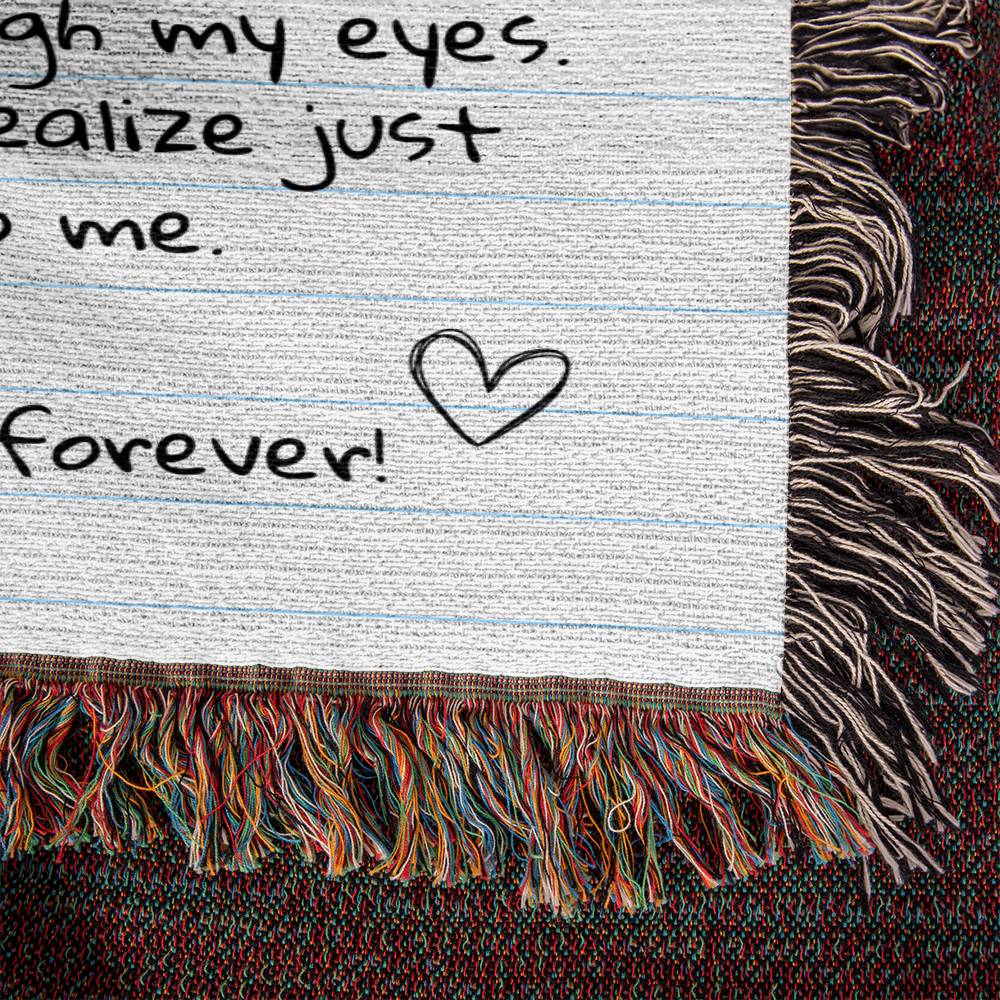 gh my eyes.
ealize just
o me.
forever!